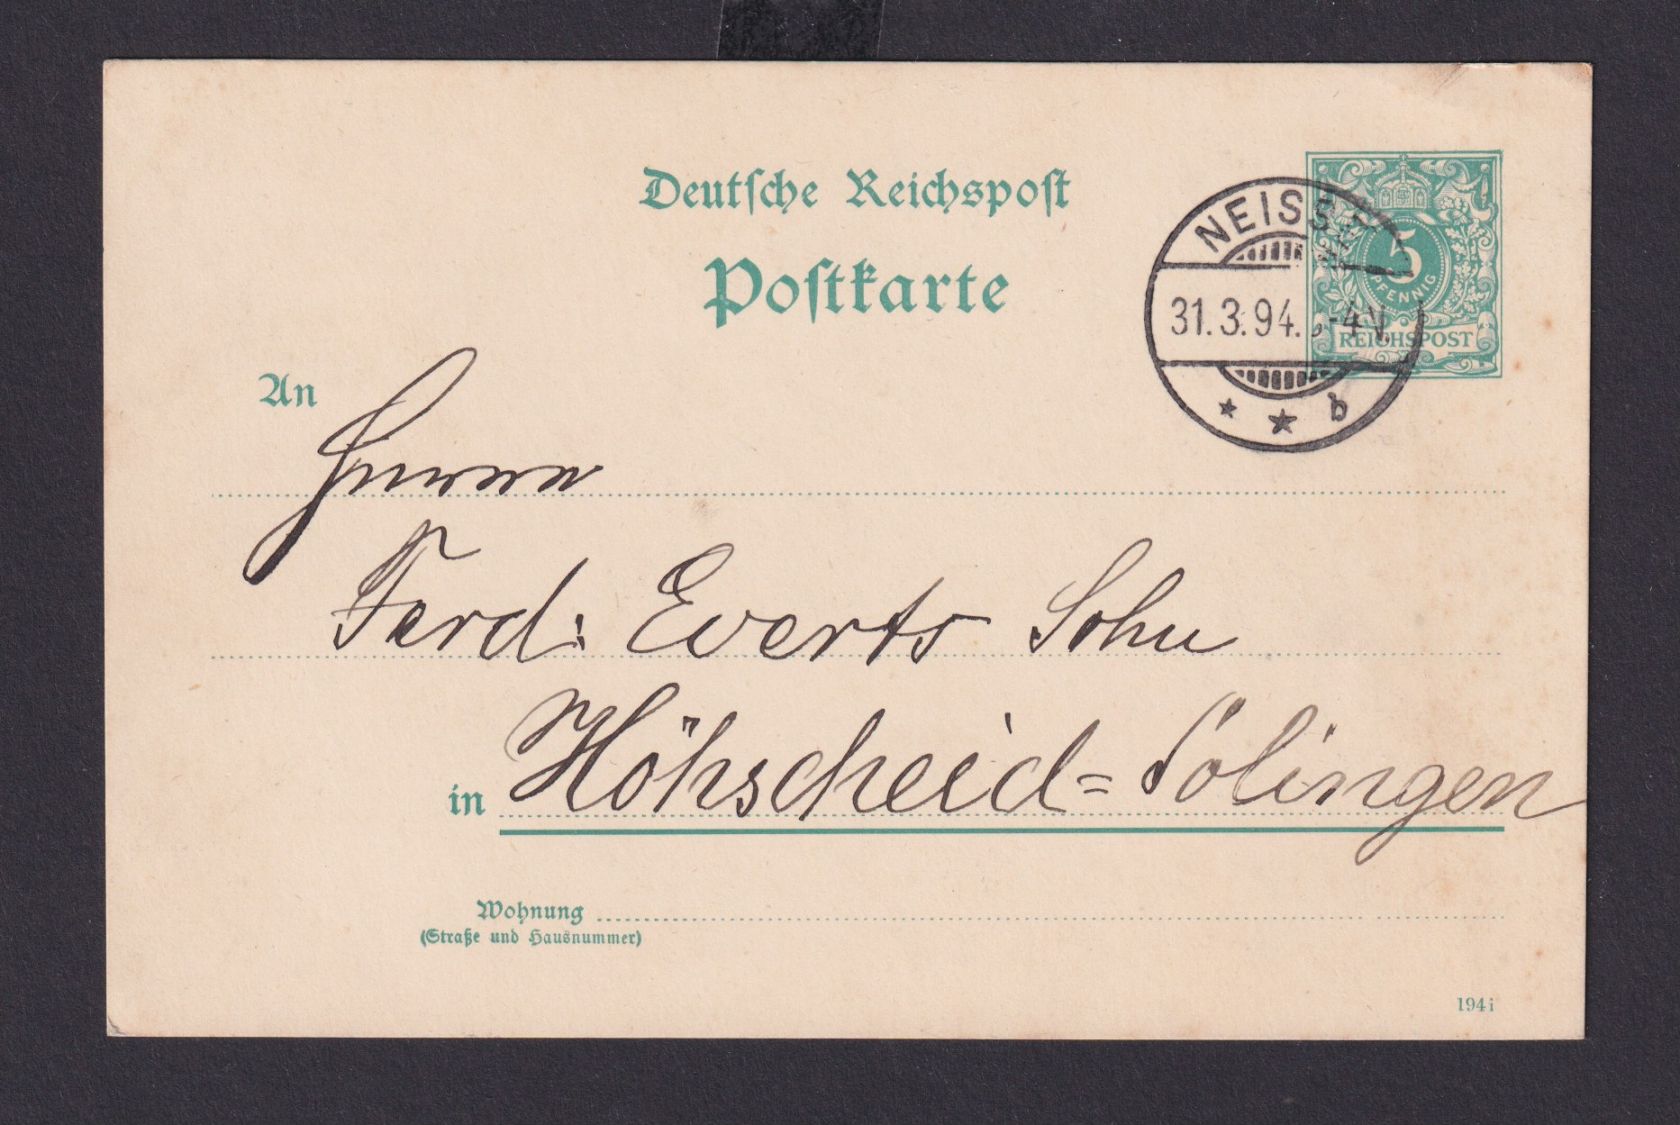 Deutsche Reichspost
Postkarte
5
PFENNIG
REICHSPOST
NEISSE
31.3.94. -4V.
* * b
An
Herren
Ferd: Everts Sohn
in Höhscheid=Solingen
Wohnung
(Straße und Hausnummer)
194i